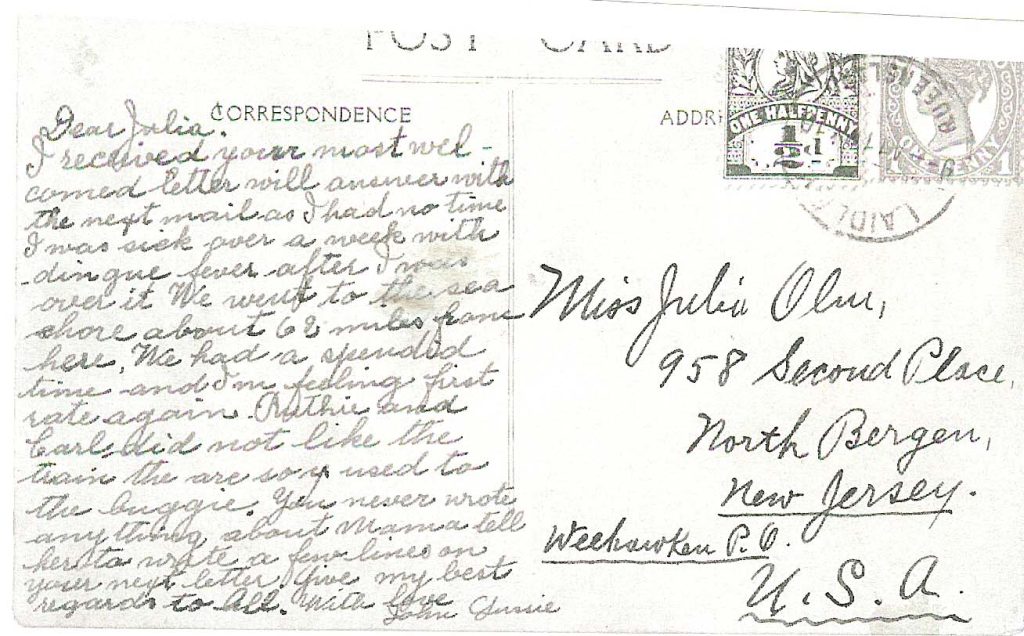 POST CARD
CORRESPONDENCE
Dear Julia.
I received your most wel-
comed letter will answer with
the next mail as I had no time
I was sick over a week with
dingue fever after I was
over it We went to the sea
shore about 62 miles from
here, We had a spended
time and I'm feeling first
rate again. Ruthie and
Earl did not like the
train the are so used to
the buggie. You never wrote
anything about Mama tell
her to write a few lines on
your next letter. Give my best
regards to All. With love
John
ONE HALFPENNY
½d
ONE PENNY
1
LAIDL
Miss Julia Olm,
958 Second Place,
North Bergen,
New Jersey.
Weehawken P.O.
U.S.A.